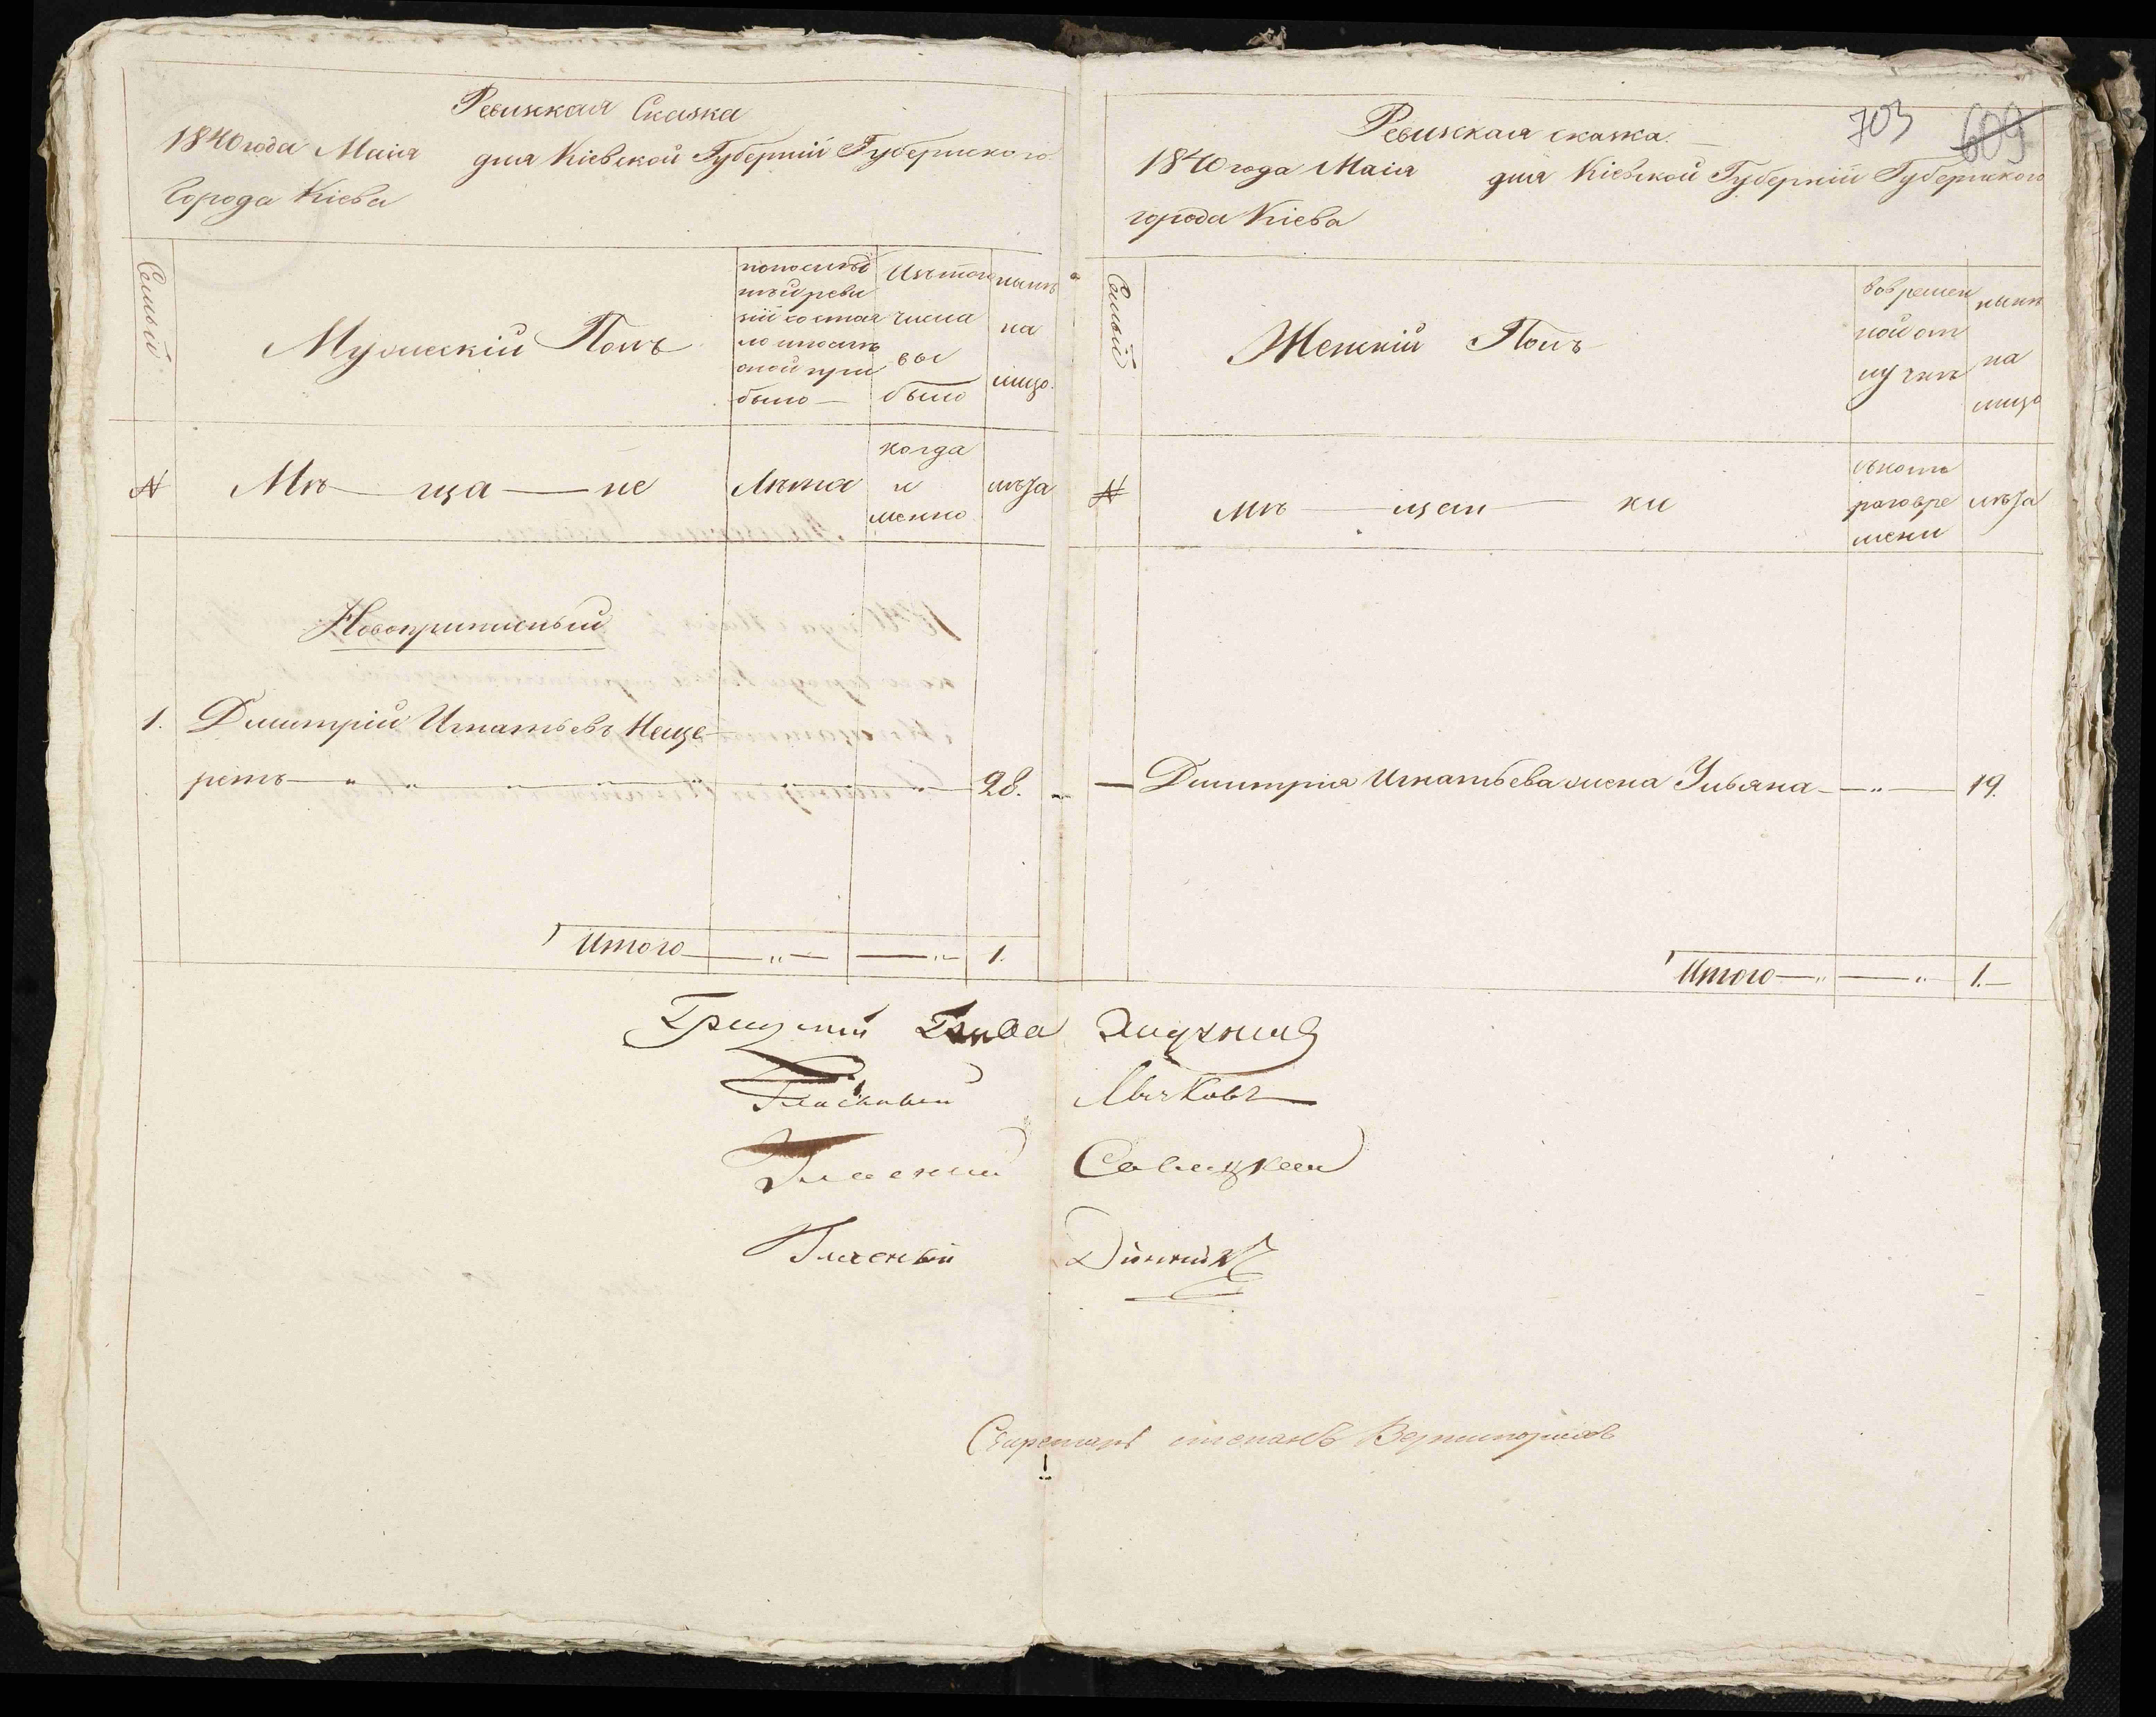 Ревизкая Сказка
1840 года Маия дня Кіевской Губерніи Губернского
Города Кіева
Семьи
Мужескій Полъ
попослѣд
нѣй реви
зіи состоя
ло и послѣ
оной при
было
Изъ того
числа
вы
было
нынѣ
на
лицо.
№ Мѣ — ща — не
Лѣта
когда
и
менно
лѣта
Новоприписный
1. Дмитрій Игнатьевъ Неще-
ретъ 28.
Итого 1.
703 609
Ревизская сказка.
1840 года Маия дня Кіевской Губерніи Губернского
города Кіева
Семьи
Женскій Полъ
вовремен
ной от
лучкѣ
нынѣ
на
лицо
№ мѣ — щан — ки
съкото
раго вре
мени
лѣта
Дмитрия Игнатьева жена Ульяна 19.
Итого 1.
Градскій Глава
Гласный
Гласный Савицкий
Гласный
Секретарь